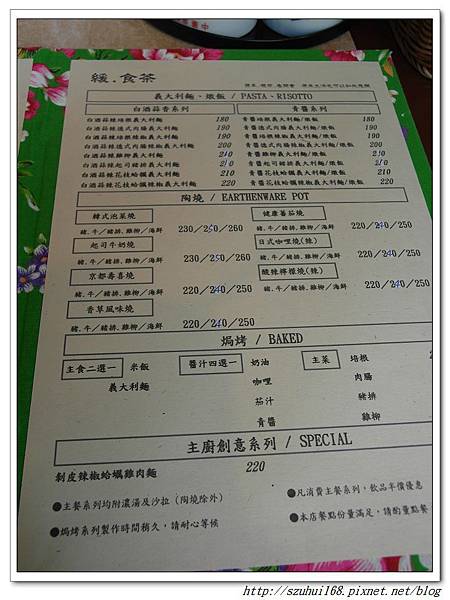 緩.食茶
義大利麵、燉飯 / PASTA、RISOTTO
白酒蒜香系列
青醬系列
白酒蒜辣培根義大利麵 180
白酒蒜辣德式肉腸義大利麵 190
白酒蒜辣
白酒蒜辣德式肉腸辣椒義大利麵 200
白酒蒜辣雞柳義大利麵 210
白酒蒜辣起司豬排義大利麵 210
白酒蒜辣花枝蛤蠣義大利麵 210
白酒蒜辣花枝蛤蠣辣椒義大利麵 220
青醬培根義大利麵/燉飯 180
青醬德式肉腸義大利麵/燉飯 190
青醬培根辣椒義大利麵/燉飯 190
青醬德式肉腸辣椒義大利麵/燉飯 200
青醬雞柳義大利麵/燉飯 210
青醬起司豬排義大利麵/燉飯 210
青醬花枝蛤蠣義大利麵/燉飯 210
青醬花枝蛤蠣辣椒義大利麵/燉飯 220
陶燒 / EARTHENWARE POT
韓式泡菜燒
豬、牛/豬排、雞柳/海鮮 230/250/260
起司牛奶燒
豬、牛/豬排、雞柳/海鮮 230/250/260
京都壽喜燒
豬、牛/豬排、雞柳/海鮮 220/240/250
香草風味燒
豬、牛/豬排、雞柳/海鮮 220/240/250
健康蕃茄燒
豬、牛/豬排、雞柳/海鮮 220/240/250
日式咖哩燒(辣)
豬、牛/豬排、雞柳/海鮮 220/240/250
酸辣檸檬燒(辣)
豬、牛/豬排、雞柳/海鮮 220/240/250
焗烤 / BAKED
主食二選一 米飯
義大利麵
醬汁四選一 奶油
咖哩
茄汁
青醬
主菜 培根
肉腸
豬排
雞柳
主廚創意系列 / SPECIAL
剝皮辣椒蛤蠣雞肉麵 220
●主餐系列均附濃湯及沙拉(陶燒除外)
●焗烤系列製作時間稍久，請耐心等候
●凡消費主餐系列，飲品半價優惠
●本店餐點份量滿足，請酌量點餐
http://szuhui168.pixnet.net/blog